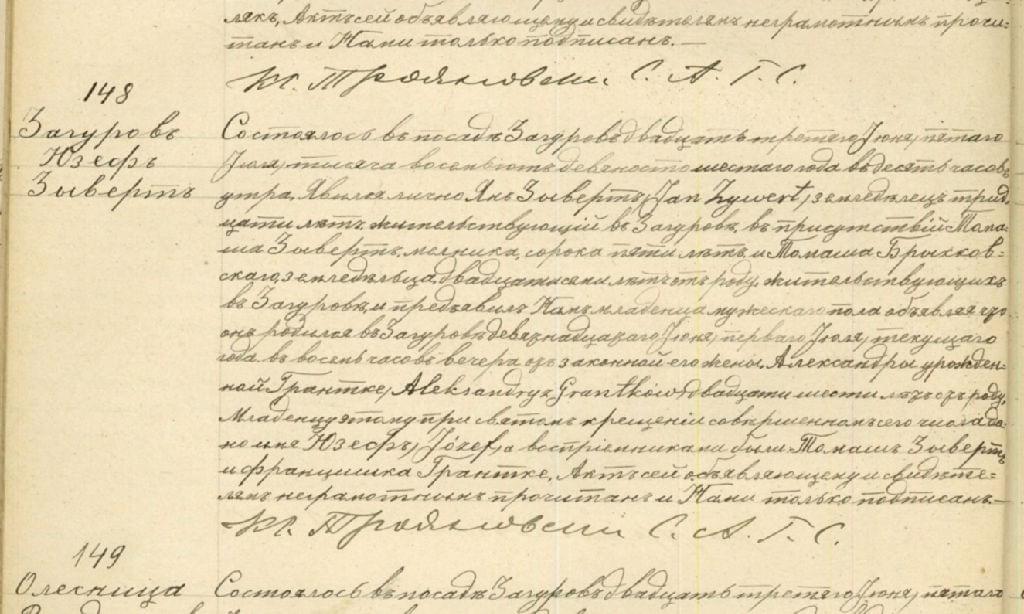 лякъ, Актъ сей объявляющему и свидѣтелямъ неграмотнымъ прочи=
танъ и Нами только подписанъ. —
Кс. Трояновски С. А. Г. С.
148
Загуровъ
Юзефъ
Зывертъ
Состоялось въ посадѣ Загуровѣ двадцать третяго Іюня, пятаго
Іюля, тысяча восемьсотъ девяносто шестаго года въ десять часовъ
утра, Явился лично Янъ Зывертъ, Jan Zywert, земледѣлецъ трид=
цати лѣтъ жительствующій въ Загуровѣ, въ присутствіи Тома=
ша Зывертъ, мельника, сорока пяти лѣтъ и Томаша Брыхков=
скаго, земледѣльца, двадцати семи лѣтъ отъ роду, жительствующихъ
въ Загуровѣ, и предъявилъ Намъ младенца мужескаго пола объявляя что
онъ родился въ Загуровѣ девятнадцатаго Іюня, перваго Іюля, текущаго
года въ восемь часовъ вечера отъ законной его жены Александры урожден=
ной Грантке, Aleksandry z Grantków двадцати шести лѣтъ отъ роду.
Младенцу этому при святомъ крещеніи совершенномъ сего числа да=
но имя Юзефъ, Józef, а воспріемниками были Томашъ Зывертъ
и Францишка Грантке. Актъ сей объявляющему и свидѣте=
лямъ неграмотнымъ прочитанъ и Нами только подписанъ. —
Кс. Трояновски С. А. Г. С.
149
Олесница
Состоялось въ посадѣ Загуровѣ двадцать третяго Іюня, пятаго